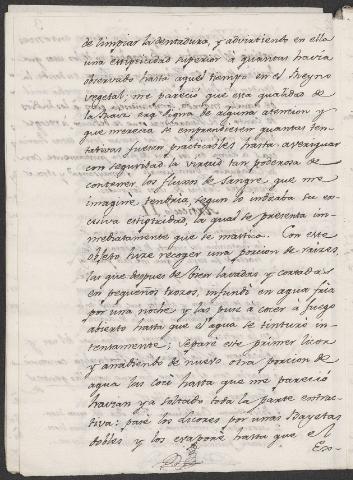 de limpiar la dentadura, y advirtiendo en ella
una estipticidad superior a quantas havia
observado hasta aquel tiempo en el Reyno
vegetal; me pareció que esta qualidad de
la era digna de alguna atencion y
que merecia se emprendiesen quantas ten-
tativas fuesen practicables hasta averiguar
con seguridad la virtud tan poderosa de
contener los fluxos de sangre que me
imaginé tendria, segun lo indicaba su ex-
cesiva estipticidad, la qual se presenta in-
mediatamente que se mastica. Con este
objeto hice recoger una porcion de raices,
las que despues de bien lavadas y cortadas
en pequeños trozos, infundí en agua fria
por una noche y las puse a cocer á fuego
abierto hasta que el agua se tinturó in-
tensamente; separé este primer licor
y anadiendo de nuevo otra porcion de
agua las cocí hasta que me pareció
havian ya soltado toda la parte extrac-
tiva: pasé los licores por unas Bayetas
dobles, y los evaporé hasta que el
Ex-